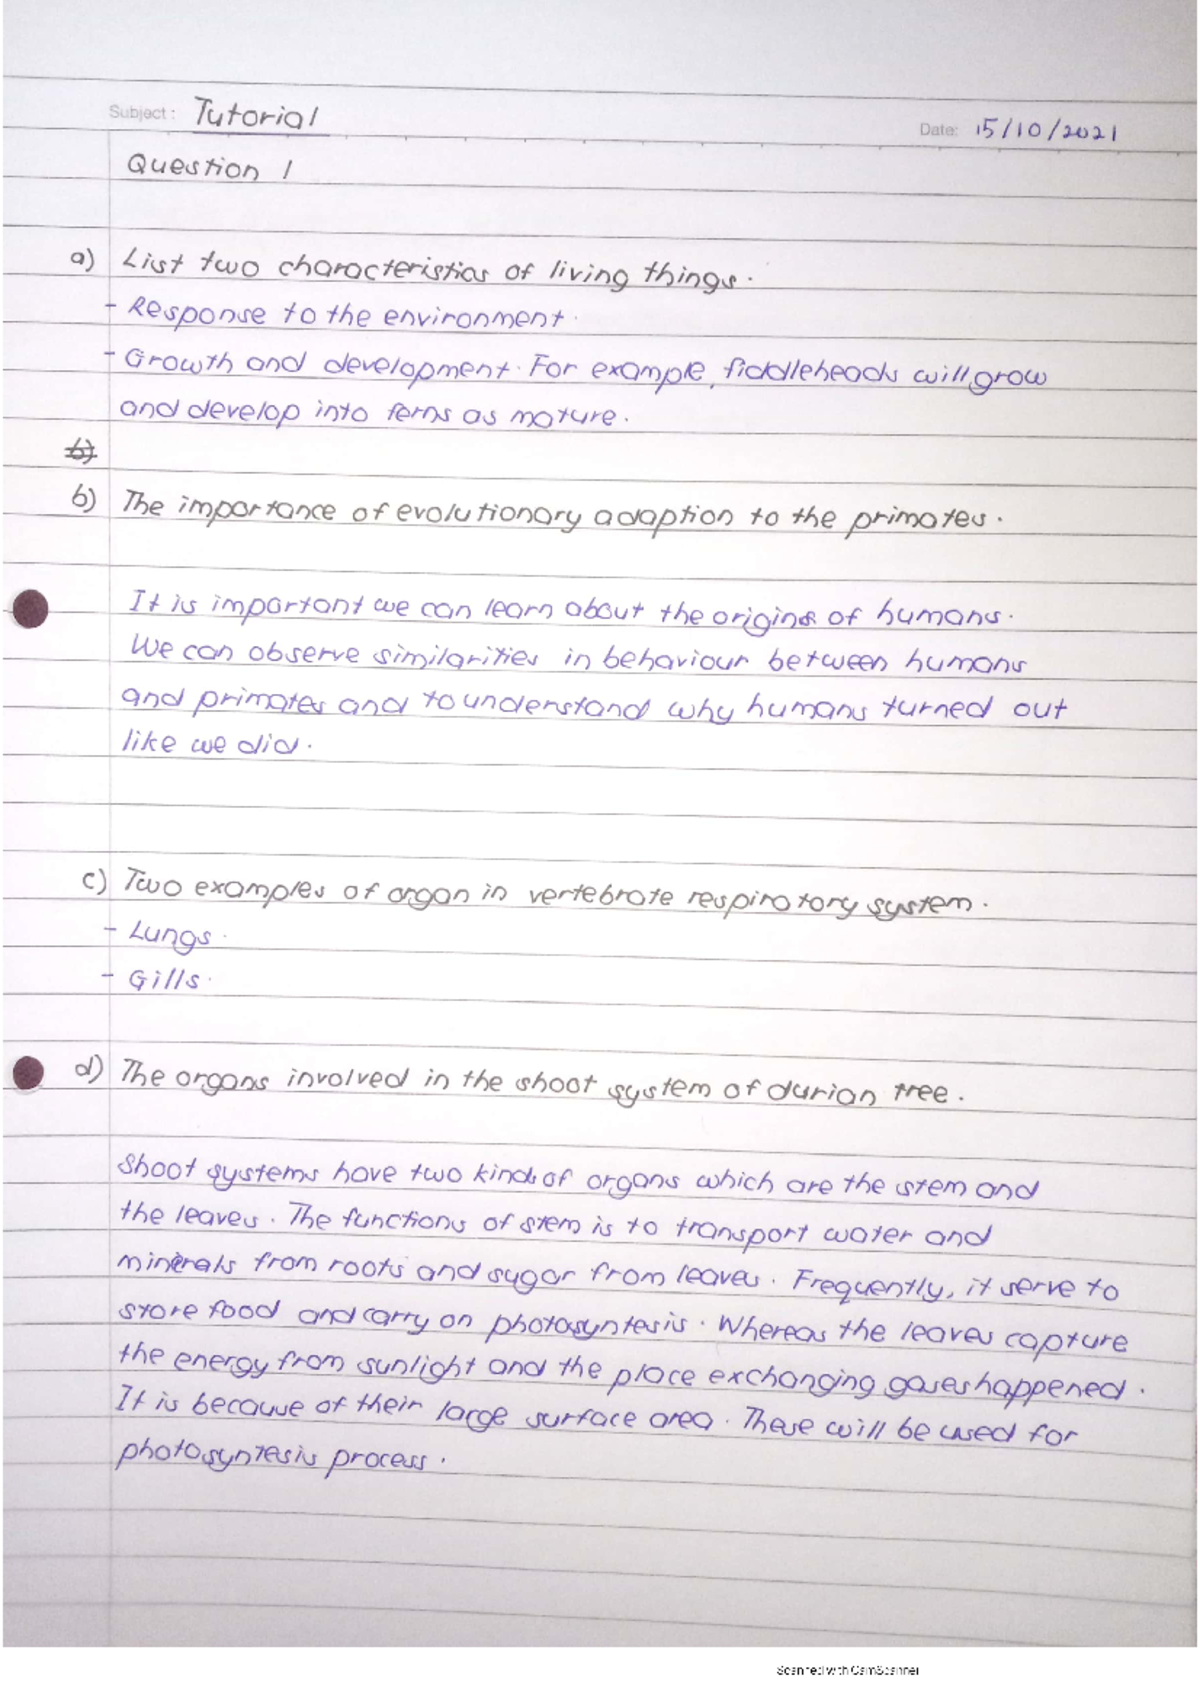 Subject: Tutorial
Date: 15/10/2021
Question 1
a) List two characteristics of living things.
- Response to the environment.
- Growth and development. For example, fiddleheads will grow
and develop into ferns as mature.
b)
b) The importance of evolutionary adaption to the primates.
It is important we can learn about the origins of humans.
We can observe similarities in behaviour between humans
and primates and to understand why humans turned out
like we did.
c) Two examples of organ in vertebrate respiratory system.
- Lungs.
- Gills.
d) The organs involved in the shoot system of durian tree.
Shoot systems have two kinds of organs which are the stem and
the leaves. The functions of stem is to transport water and
minerals from roots and sugar from leaves. Frequently, it serve to
store food and carry on photosyntesis. Whereas the leaves capture
the energy from sunlight and the place exchanging gases happened.
It is because of their large surface area. These will be used for
photosyntesis process.
Scanned with CamScanner